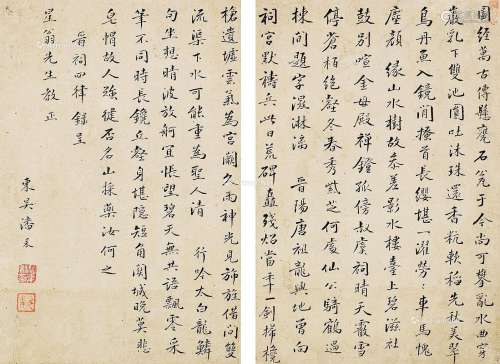 圖經萬古傳懸甕石今可攀亂水曲穿
巖乳下雙池圓吐沫珠還香秔軟稻先秋美翠
鳥丹魚入鏡閒搔首長纓堪一濯勞〻車馬愧
塵顏 緣山水樹故參差影水樓臺上碧滋社
鼓別喧金母殿禪鐙孤傍叔虞祠晴天雪
停蒼栢絕壑冬春秀紫芝何處仙公騎鶴過
棟閒題字滋淋漓 晉陽唐祖龍興地曾向
祠宮默禱兵此日荒碑矗殘炤當年一劍掃欃
槍遺墟雲氣為宮闕久雨神光見旆旌借問雙
流渠下水可能重為聖人清 行吟太白龍鱗
句坐想晴波放舸宜悵望碧天無共語飄零采
筆不同時長鑱丘壑身堪隱短角關城晚莫悲
皂帽故人強健否名山採藥汝何之
晉祠四律錄呈
星翁先生教正
東吳潘耒